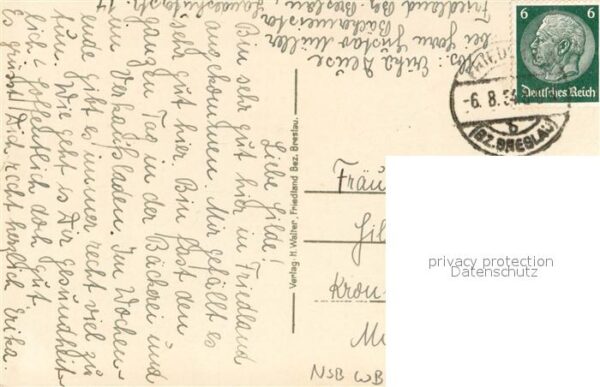 Abs.: Erika Neuse
bei Herrn Gustav Müller
Bäckermeister
Friedland Bz. Breslau, Landeshuterstr. 17
Liebe Hilde!
Bin sehr gut hier in Friedland
angekommen. Mir gefällt es
sehr gut hier. Bin fast den
ganzen Tag in der Bäckerei und
im Verkaufsladen. Im Wochen-
ende gibt es immer recht viel zu
tun. Wie geht es Dir gesundheit-
lich? Hoffentlich doch gut.
Es grüsst Dich recht herzlich Erika.
Verlag H. Walter, Friedland Bez. Breslau.
6 6
Deutsches Reich
FRIED
-6.8.3
b
(BZ. BRESLAU)
Fräu
Hil
Kron
NSB WB
privacy protection
Datenschutz